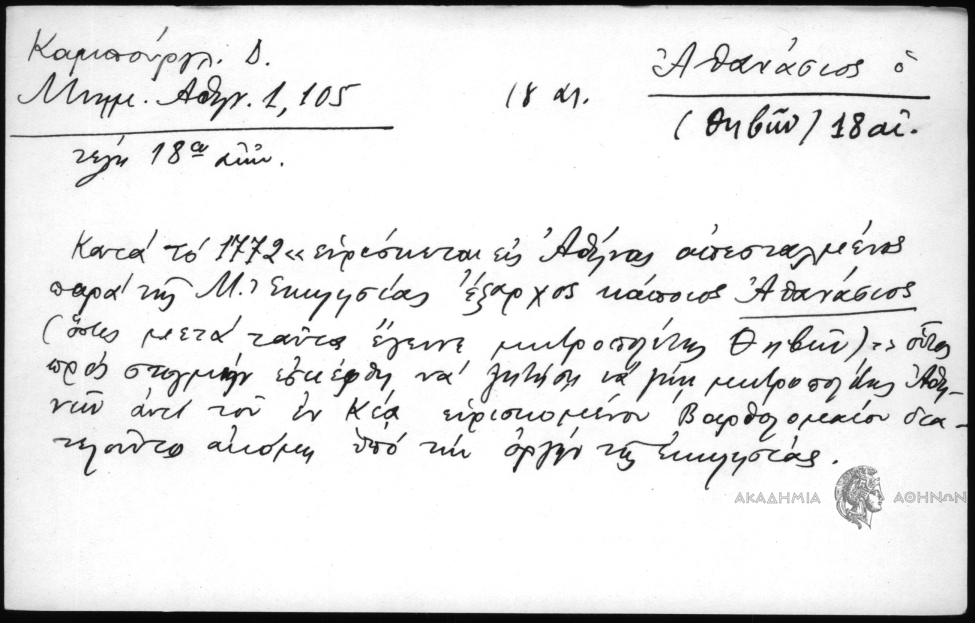 Καμπούργλ. Δ.
Μνημ. Αθην. 1, 105
τέλη 18ου αιών.
18 αι.
Ἀθανάσιος ὁ
(Θηβῶν) 18 αἰ.
Κατά τό 1772 «εὑρίσκεται εἰς Ἀθήνας ἀπεσταλμένος
παρά τῆς Μ. Ἐκκλησίας ἔξαρχος κάποιος Ἀθανάσιος
(ὅστις μετά ταῦτα ἔγεινε μητροπολίτης Θηβῶν) οὗτος
πρός στιγμήν ἐσκέφθη νά ζητήση νά γίνη μητροπολίτης Ἀθη-
νῶν ἀντί τοῦ ἐν Κέᾳ εὑρισκομένου Βαρθολομαίου δια-
τελοῦντος ἀκόμη ὑπό τήν ὀργήν τῆς Ἐκκλησίας.
ΑΚΑΔΗΜΙΑ ΑΘΗΝΩΝ